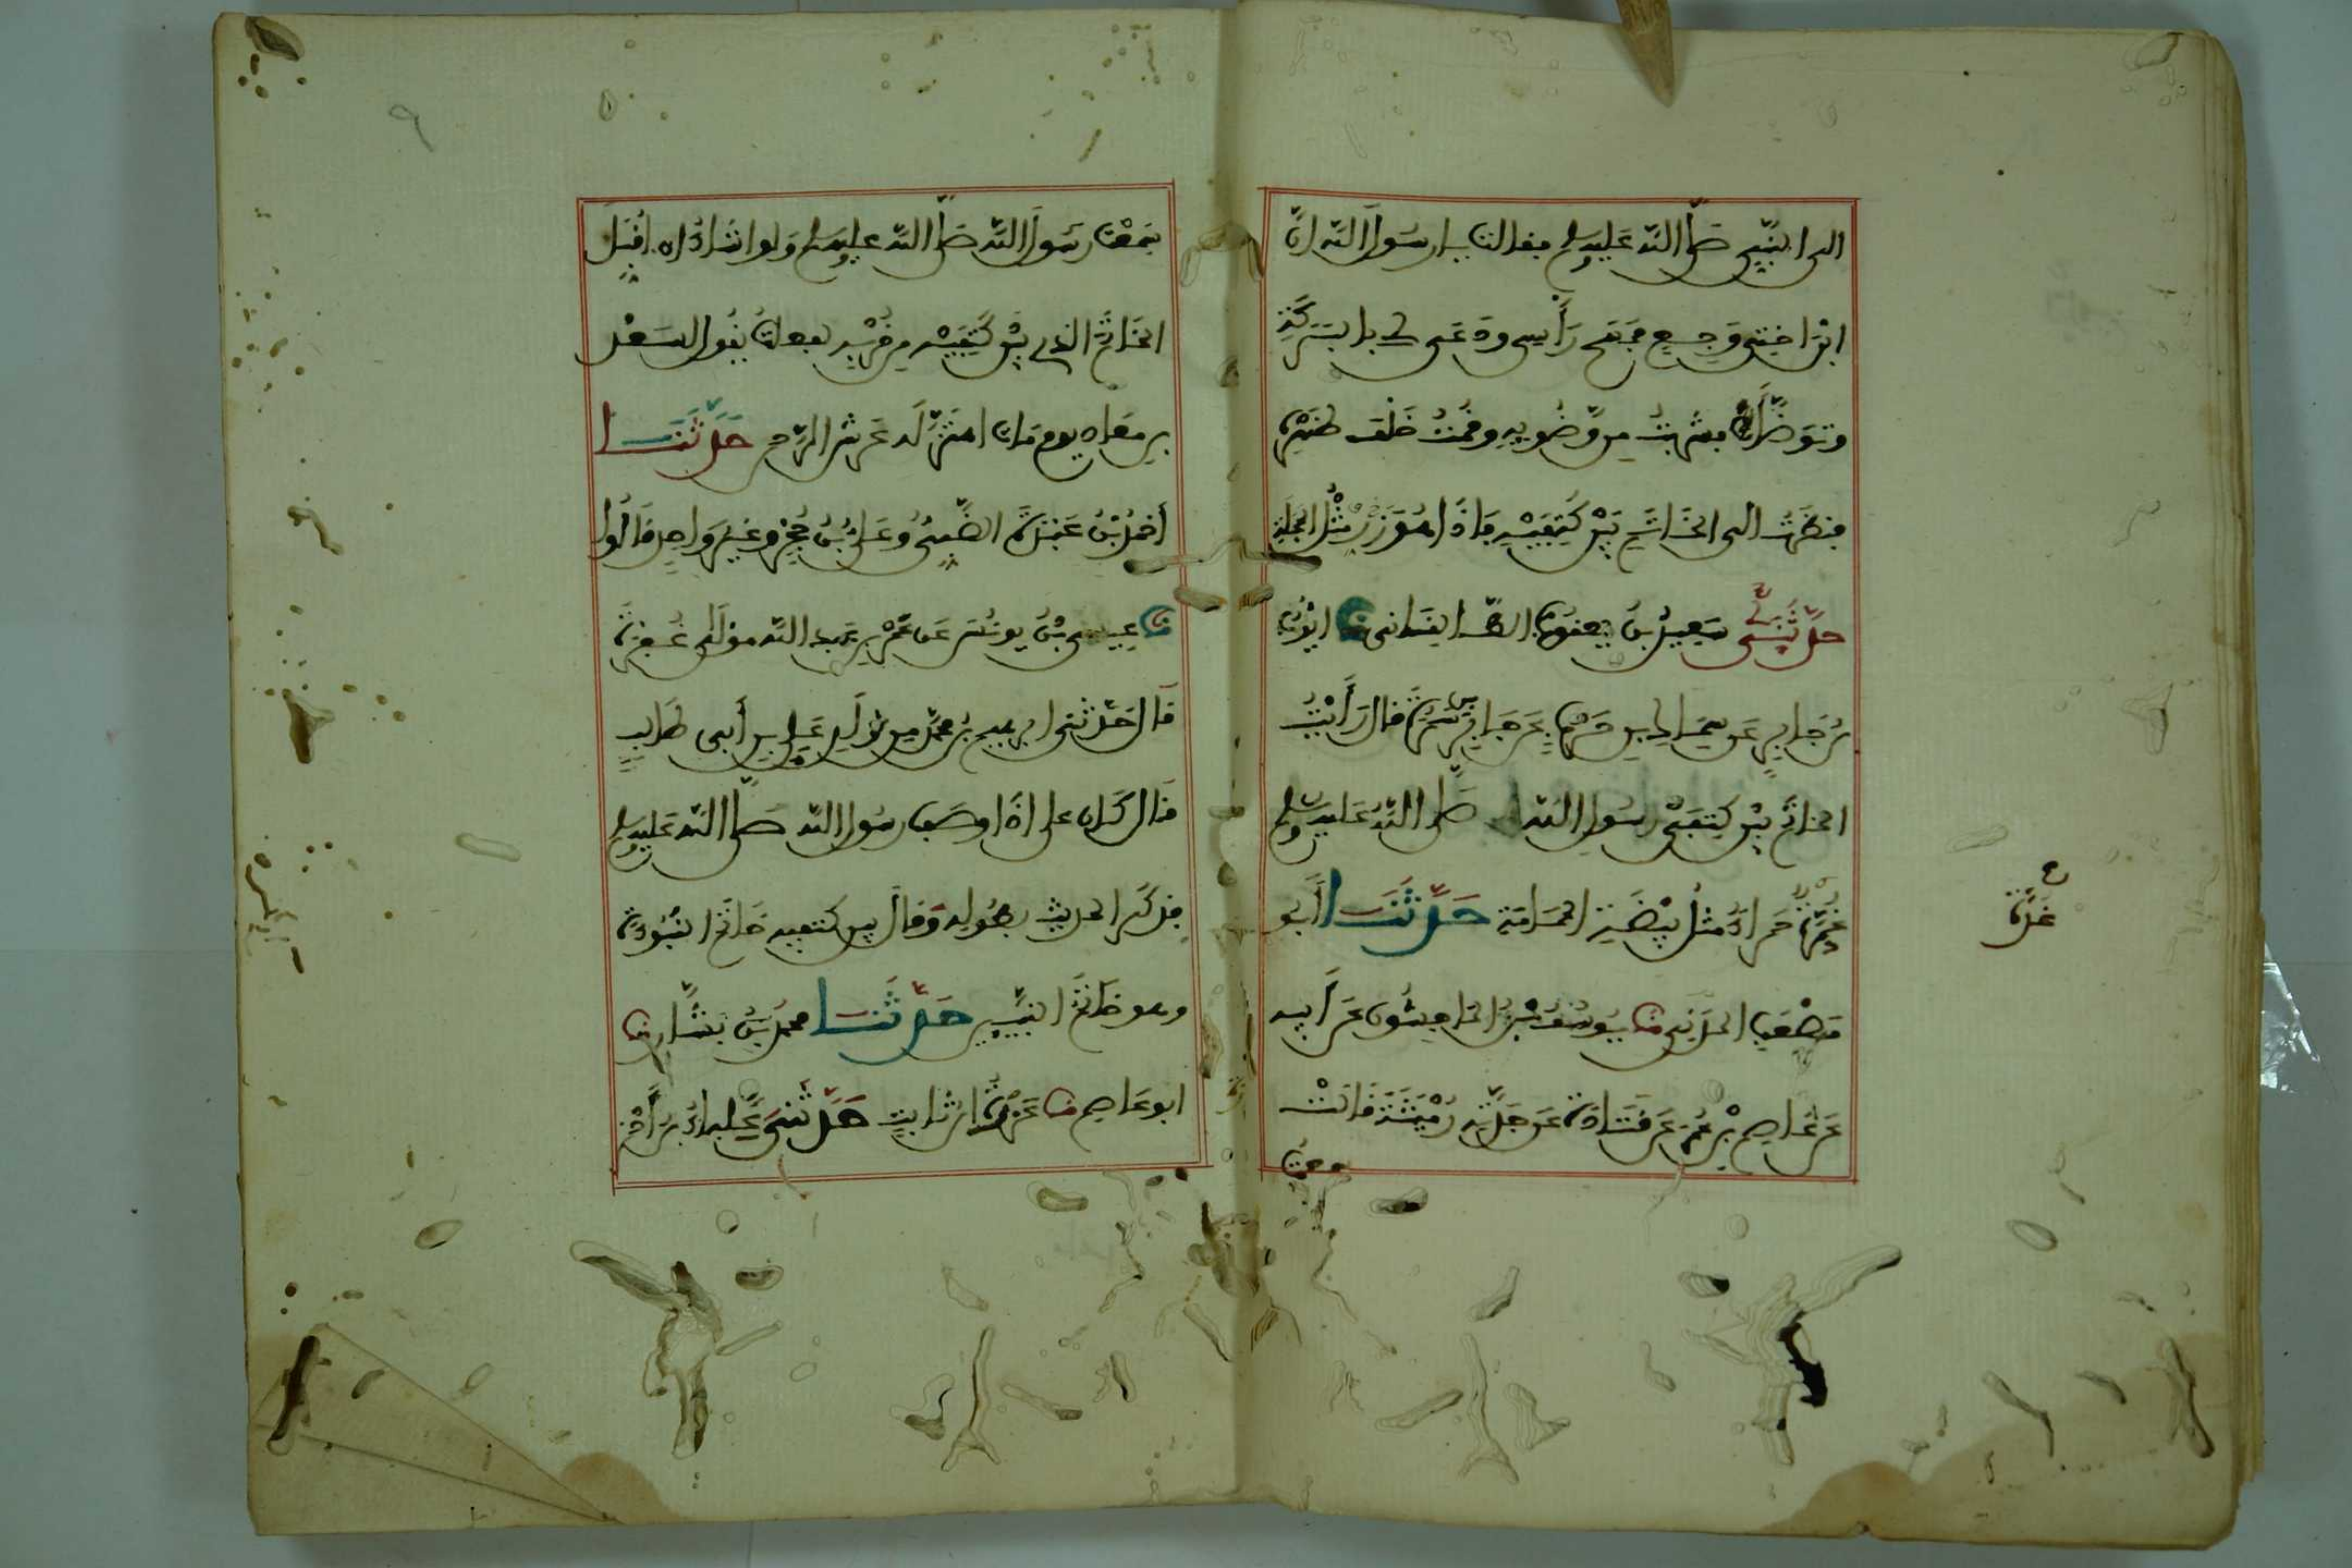 الى النبي صلى الله عليه وسلم فقالت يا رسول الله ان
ابن اختي وجع فمسح رأسي ودعى لي بالبركة
وتوضأ فشربت من وضوءيه وقمت خلف ظهره
فنظرت الى الخاتم بين كتفيه فاذا هو زر مثل الحجلة
حدثني سعيد بن يعقوب الطالقاني نا ايوب
بن جابر عن سماك بن حرب عن جابر بن سمرة قال رأيت
الخاتم بين كتفي رسول الله صلى الله عليه وسلم
غدة حمراء مثل بيضة الحمامة حدثنا أبو
غدة
مصعب المدني نا يوسف بن الماجشون عن أبيه
عن عاصم بن عمر عن قتادة عن جدته رميثة قالت
سمعت رسول الله صلى الله عليه وسلم ولو اشاء ان اقبل
الخاتم الذي بين كتفيه من قربه لفعلت يقول لسعد
بن معاذ يوم مات اهتز له عرش الرحمن حدثنا
أحمد بن عبدة الضبي وعلي بن حجر وغير واحد قالوا
نا عيسى بن يونس عن عمر بن عبد الله مولى غفرة
قال حدثني ابرهيم بن محمد من ولد علي بن أبي طالب
قال كان علي اذا وصف رسول الله صلى الله عليه وسلم
فذكر الحديث بطوله وقال بين كتفيه خاتم النبوءة
وهو خاتم النبيين حدثنا محمد بن بشار نا
ابو عاصم نا عزرة بن ثابت حدثني علباء بن أحمر